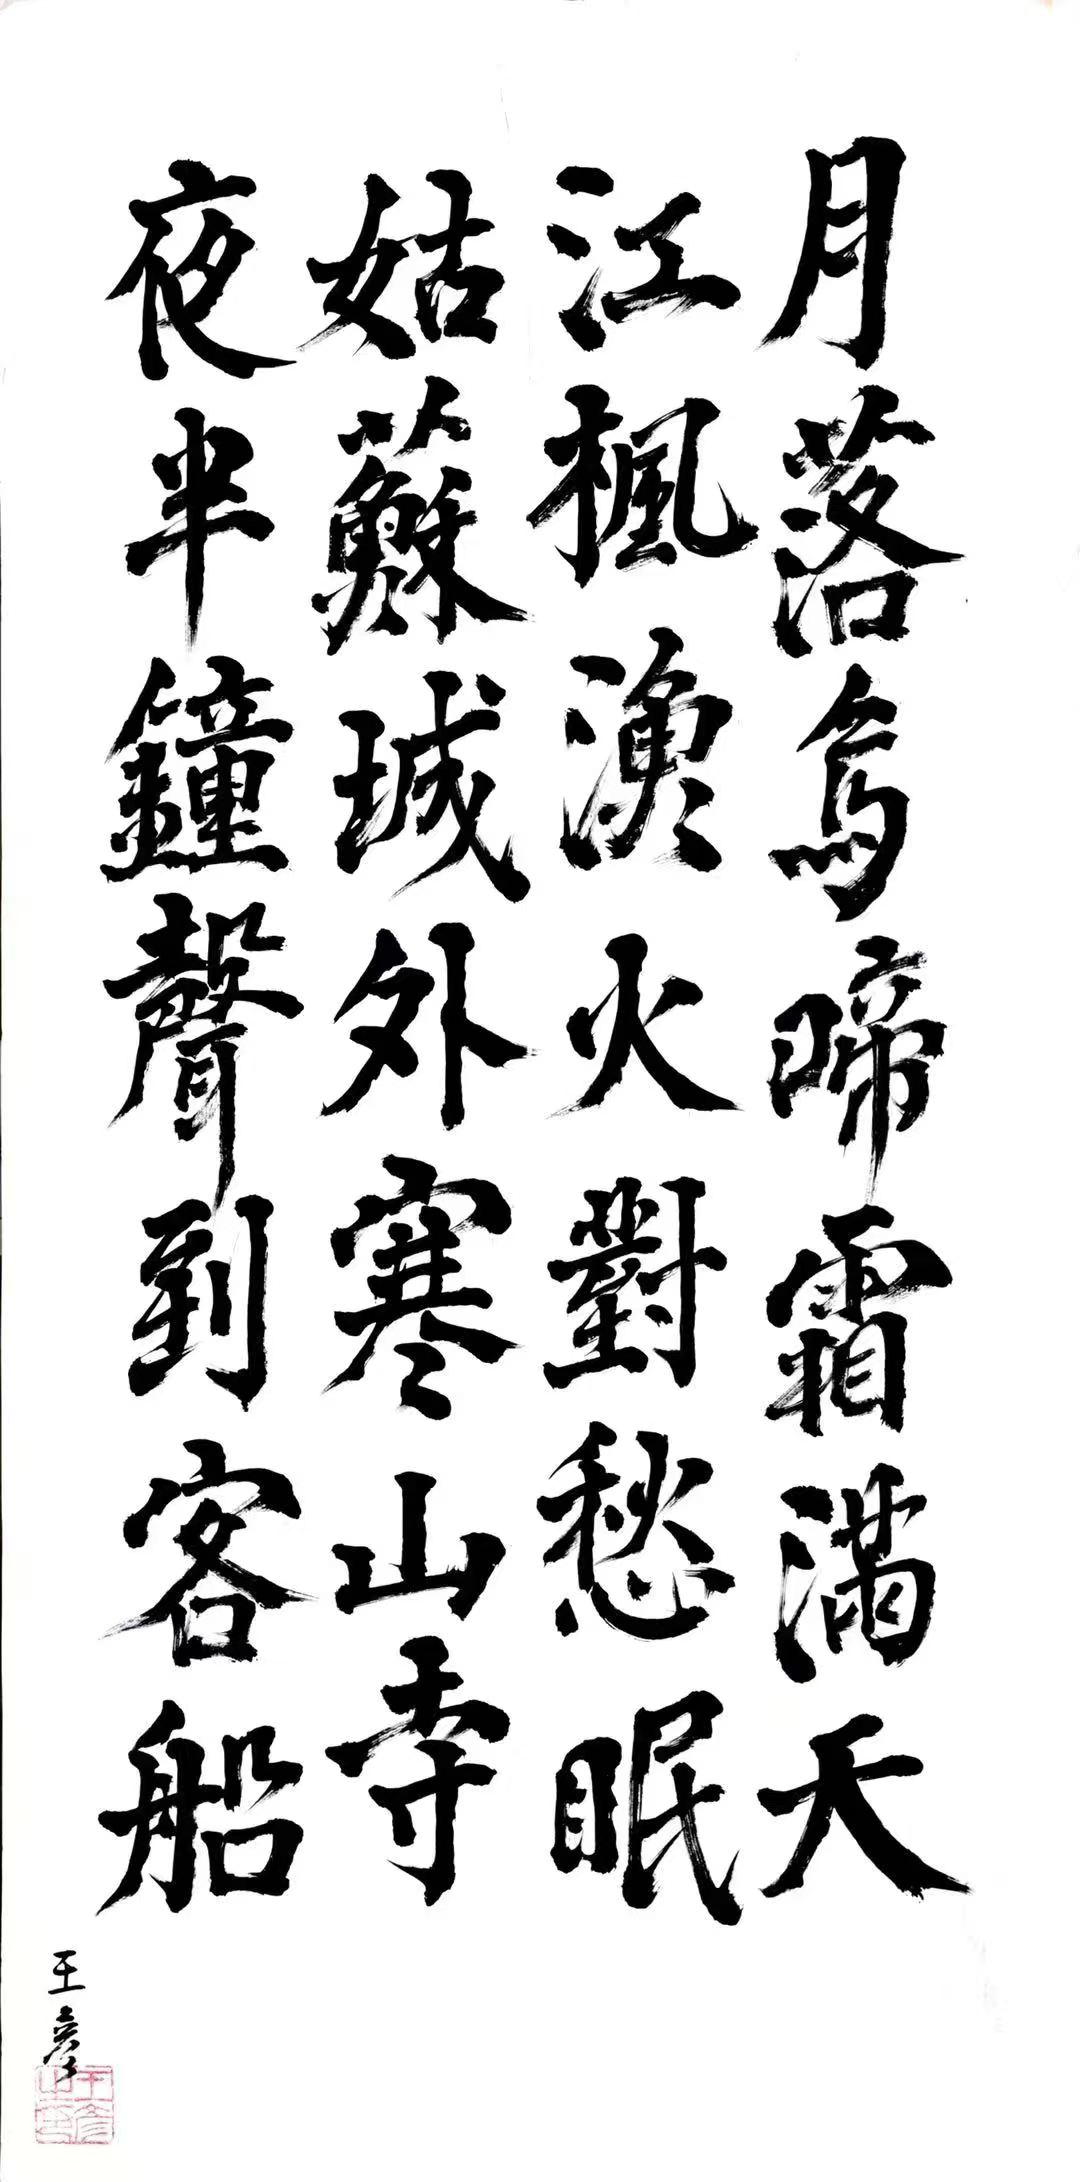 月落烏啼霜滿天
江楓漁火對愁眠
姑蘇城外寒山寺
夜半鐘聲到客船
王彥